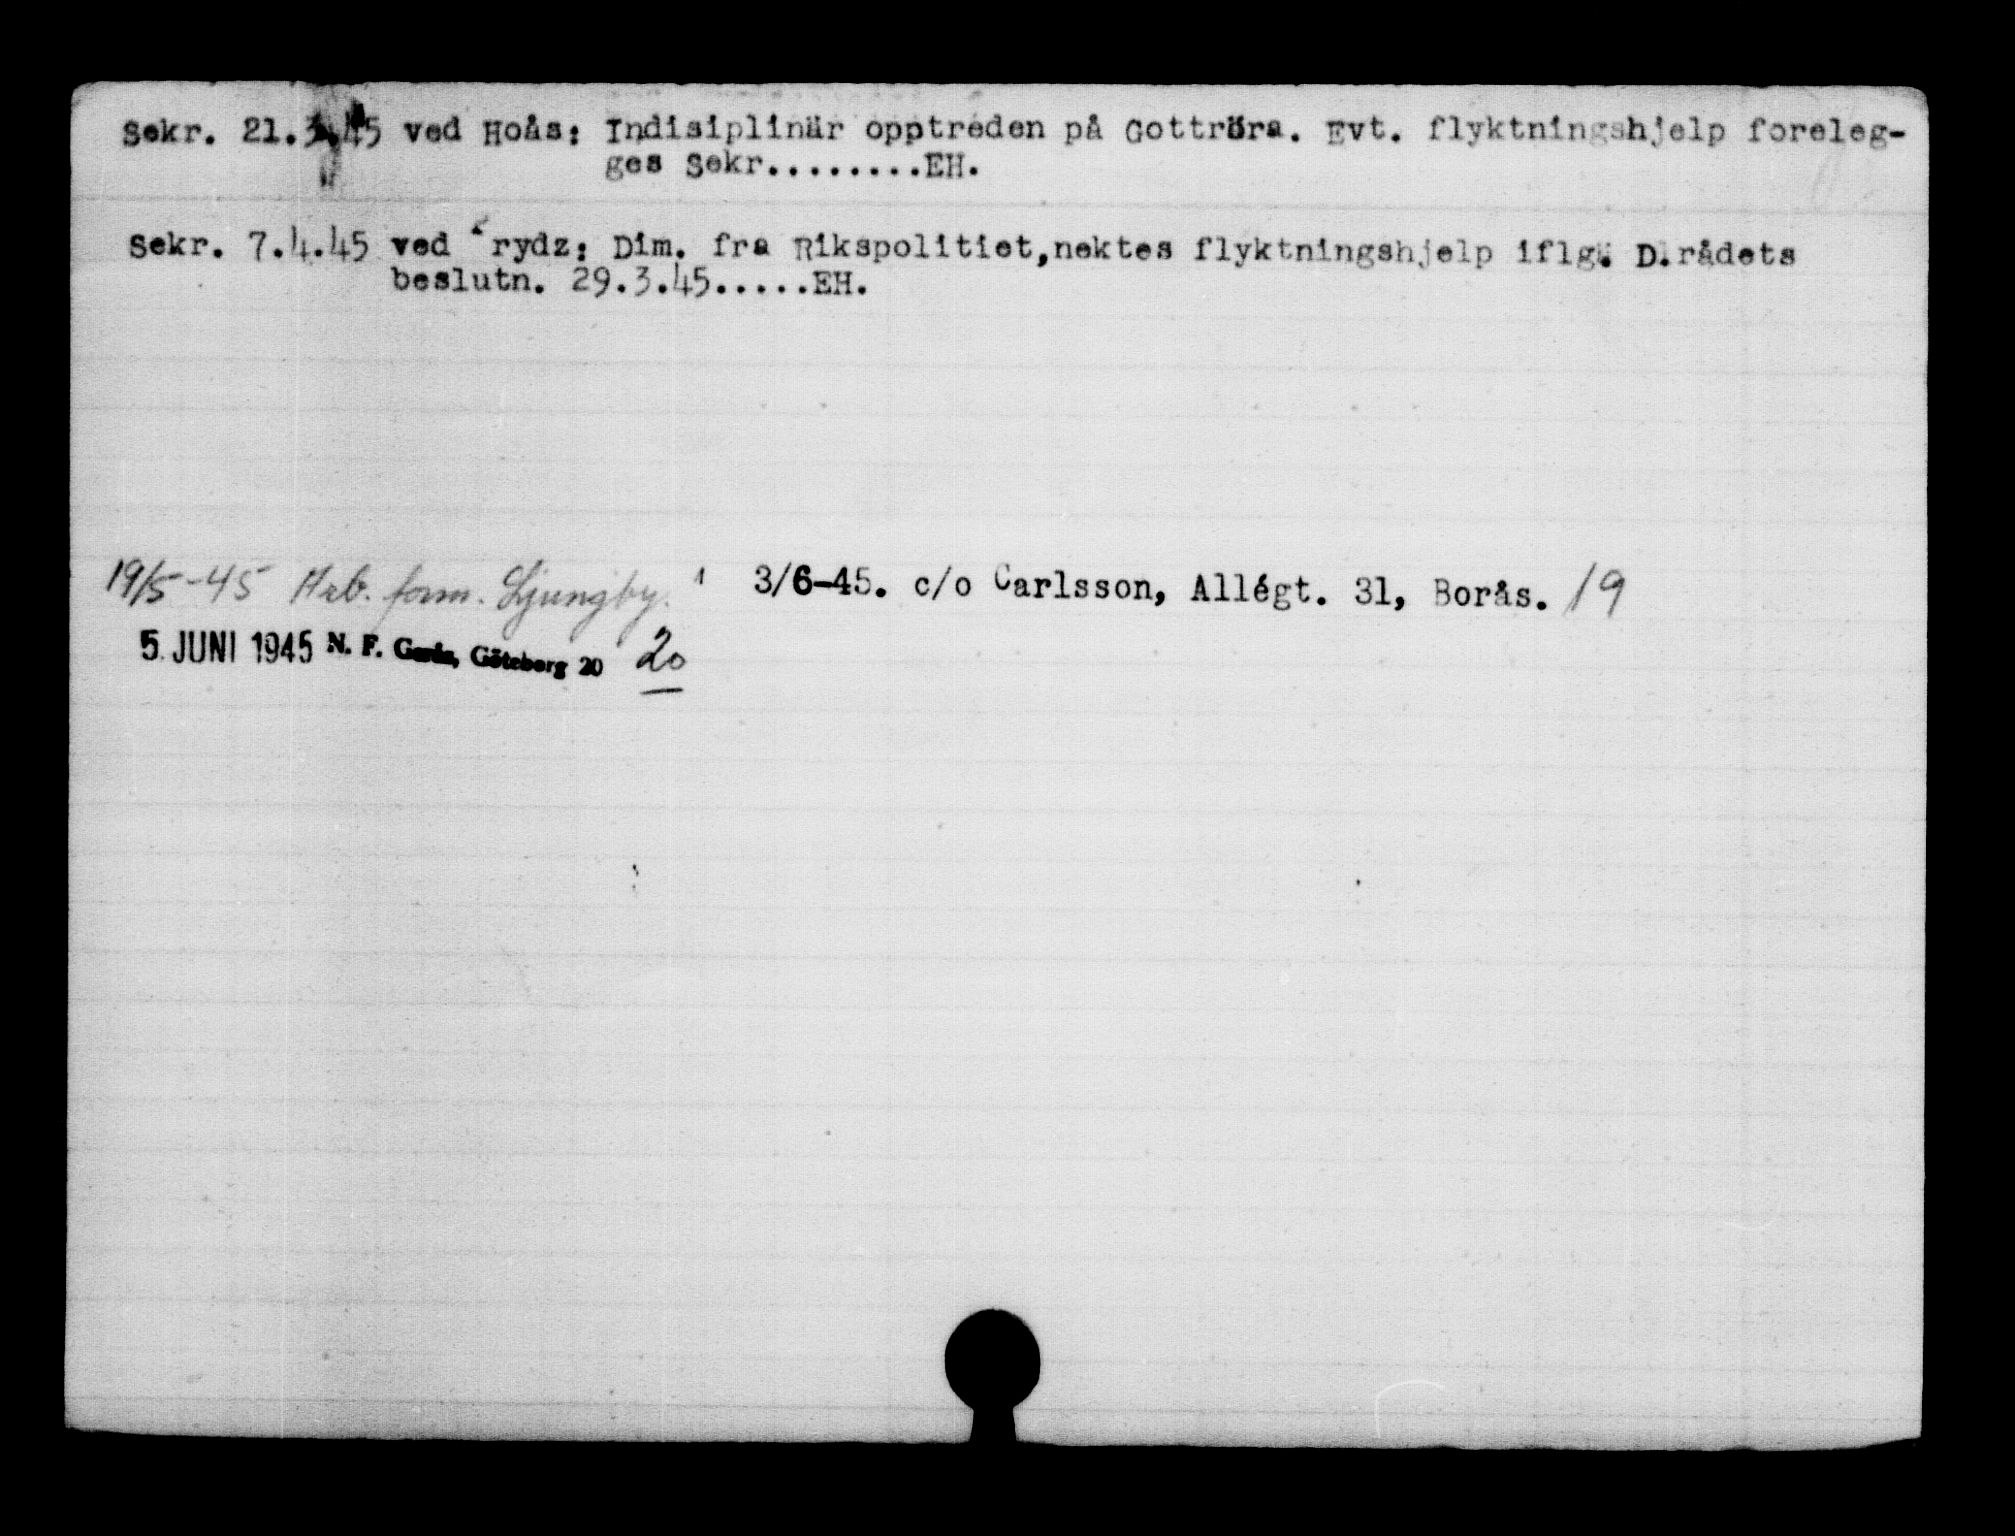 Sekr. 21.3.45 ved Hoås: Indisiplinär opptreden på Gottröra. Evt. flyktningshjelp foreleg-
ges Sekr........EH.
Sekr. 7.4.45 ved rydz: Dim. fra Rikspolitiet,nektes flyktningshjelp iflg. D.rådets
beslutn. 29.3.45.....EH.
19/5-45 Arb. form. Ljungby. 3/6-45. c/o Carlsson, Allégt. 31, Borås. 19
5. JUNI 1945 N. F. Göteborg 20 20